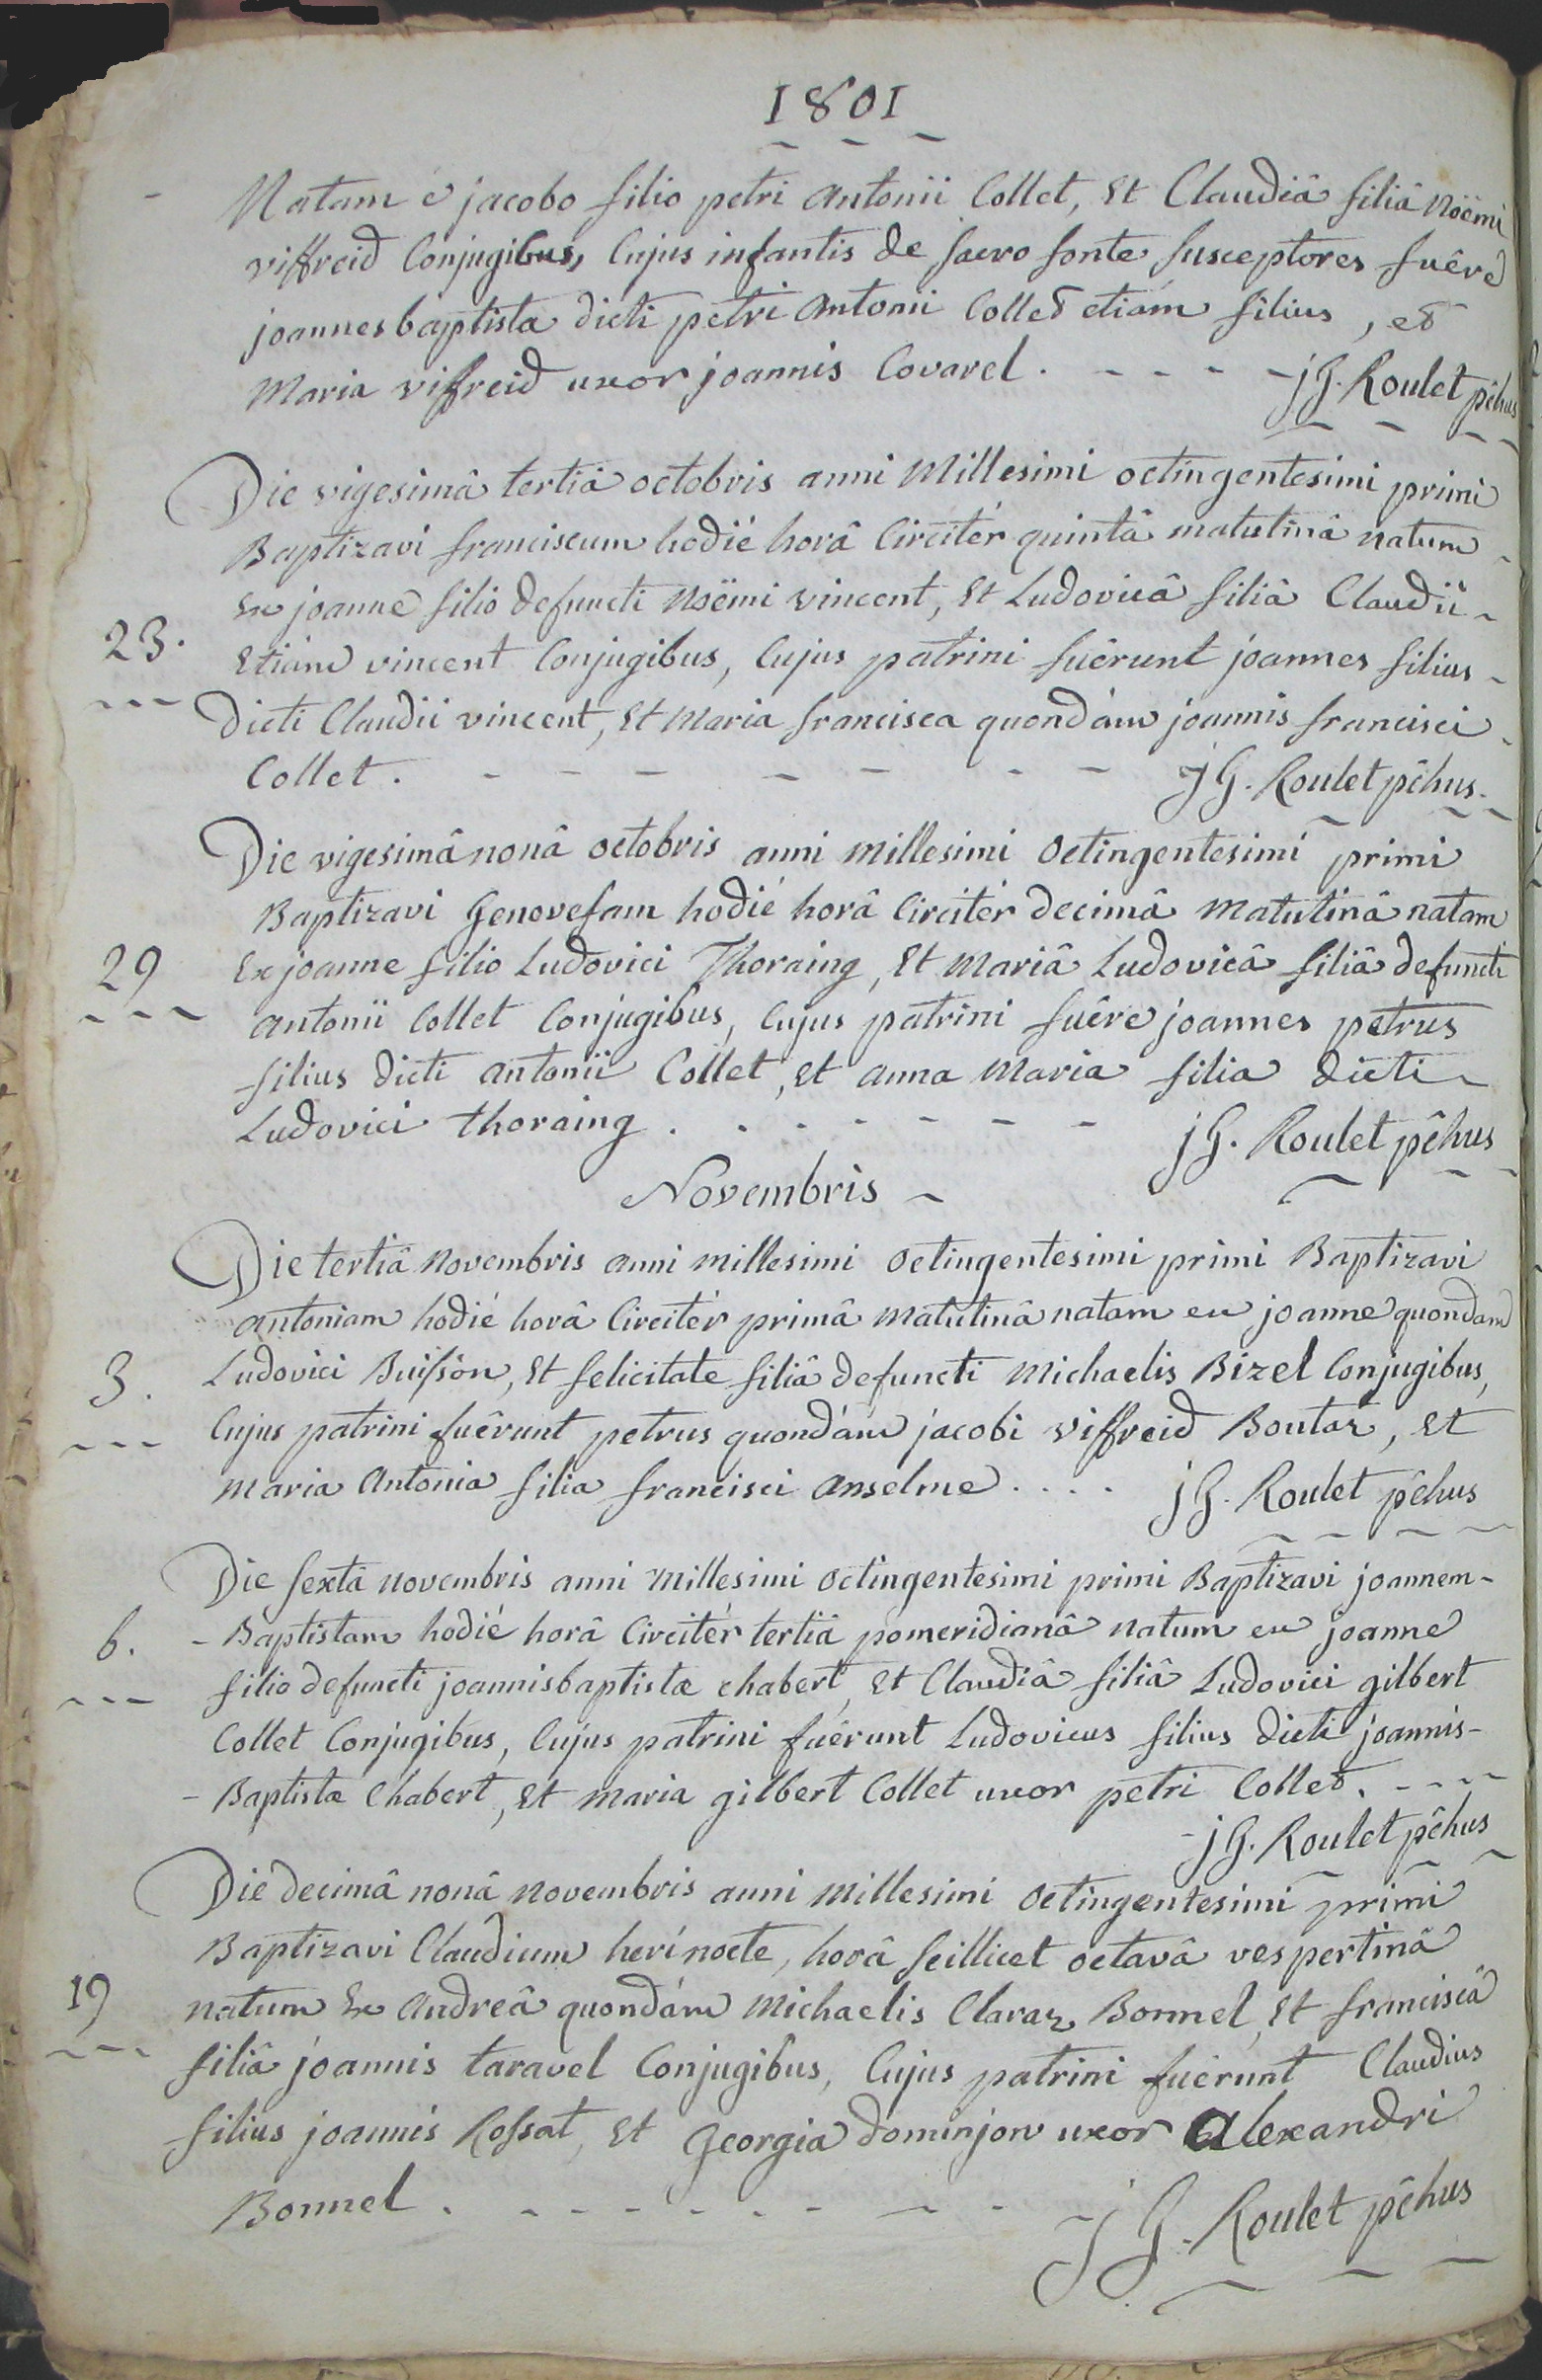 1801
Natam é jacobo filio petri antonii Collet, Et Claudiâ filiâ Noëmi
viffreid Conjugibus, Cujus infantis de sacro fonte susceptores fuêre
joannesbaptista dicti petri antonii Collet etiám filius, et
Maria viffreid uxor joannis Covarel. - - - - jG. Roulet pêhus
Die vigesimâ tertiâ octobris anni Millesimi octingentesimi primi
Baptizavi franciscum hodié horâ Circitér quintâ matutinâ natum
Ex joanne filio defuncti Noëmi vincent, Et Ludovicâ filiâ Claudii
23. Etiám vincent Conjugibus, Cujus patrini fuêrunt joannes filius
dicti Claudii vincent, Et Maria francisca quondám joannis francisci
Collet. - - - - - - - jG. Roulet pêhus.
Die vigesimâ nonâ octobris anni Millesimi Octingentesimi primi
Baptizavi Genovefam hodié horâ Circitér decimâ Matutinâ natam
29 Ex joanne filio Ludovici Thoraing, Et Mariâ Ludovicâ filiâ defuncti
antonii Collet Conjugibus, Cujus patrini fuêre joannes petrus
filius dicti antonii Collet, Et anna Maria filia dicti
Ludovici thoraing. - - - - - - jG. Roulet pêhus
Novembris
Die tertiâ Novembris anni millesimi octingentesimi primi Baptizavi
antoniam hodié horâ Circitér primâ Matutinâ natam ex joanne quondam
3. Ludovici Buisson, Et felicitate filiâ defuncti Michaelis Bizel Conjugibus,
Cujus patrini fuêrunt petrus quondám jacobi viffreid Boutaz, Et
Maria Antonia filia francisci Anselme.... jG. Roulet pêhus
Die sextâ novembris anni Millesimi Octingentesimi primi Baptizavi joannem-
6. -Baptistam hodié horâ Circitér tertiâ pomeridianâ natum ex joanne
filio defuncti joannisbaptistæ chabert, Et Claudiâ filiâ Ludovici gilbert
Collet Conjugibus, Cujus patrini fuêrunt Ludovicus filius dicti joannis-
-Baptistæ Chabert, Et Maria gilbert Collet uxor petri Collet. - - - -
jG. Roulet pêhus
Dié decimâ nonâ Novembris anni Millesimi Octingentesimi primi
Baptizavi Claudium herí nocte, horâ scillicet octavâ vespertinâ
19 natum Ex Andreâ quondám Michaelis Claraz Bonnel, Et franciscâ
filiâ joannis taravel Conjugibus, Cujus patrini fuêrunt Claudius
filius joannis Rossat, Et Georgia dominjon uxor Alexandri
Bonnel. - - - - - - - jG. Roulet pêhus